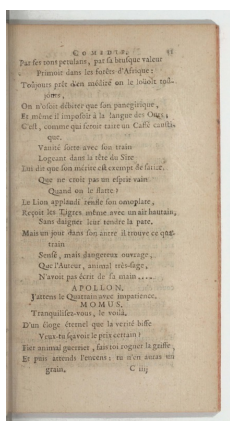 COMEDIE.
Par ses tons petulans, par sa brusque valeur
Primoit dans les forêts d'Afrique :
Toûjours prêt d'en médire on le loüoit toû-
jours,
On n'osoit débiter que son panegirique,
Et même il imposoit à la langue des Ours,
C'est, comme qui feroit taire un Caffé causti-
que.
Vanité sorte avec son train
Logeant dans la tête du Sire
Lui dit que son mérite est exempt de satire.
Que ne croit pas un esprit vain
Quand on le flatte ?
Le Lion applaudi renfle son omoplate,
Reçoit les Tigres même avec un air hautain,
Sans daigner leur tendre la pate.
Mais un jour dans son antre il trouve ce qua-
train
Sensé, mais dangereux ouvrage,
Que l'Auteur, animal très-sage,
N'avoit pas écrit de sa main....
APOLLON.
J'attens le Quatrain avec impatience.
MOMUS.
Tranquilisez-vous, le voilà.
D'un éloge éternel que la verité biffe
Veux-tu sçavoir le prix certain ?
Fier animal guerrier, fais toi rogner la griffe,
Et puis attends l'encens ; tu n'en auras un
grain.
C iij